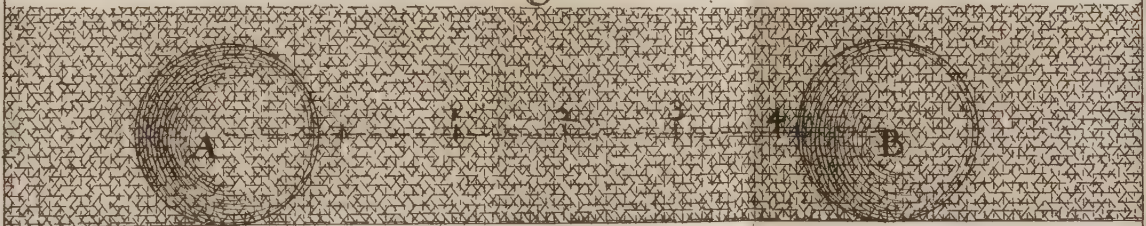 A 1 2 3 4 B